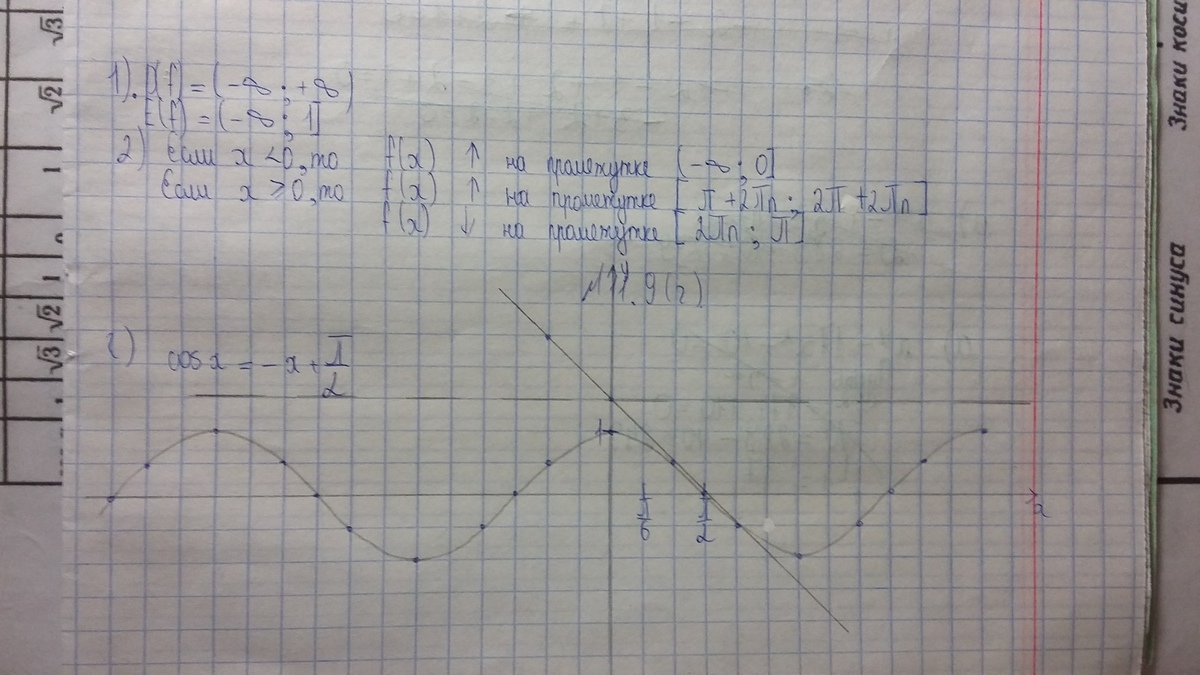 1). D(f) = (-∞ ; +∞)
E(f) = (-∞ ; 1]
2) Если x < 0, то f(x) ↑ на промежутке (-∞ ; 0]
Если x ⩾ 0, то f(x) ↑ на промежутке [π + 2πn ; 2π + 2πn]
f(x) ↓ на промежутке [2πn ; π]
№11.9(г)
г) cos x = -x + π/2
1
π/6
π/2
x
√3
√2
1
1
√2
√3
Знаки коси
Знаки синуса